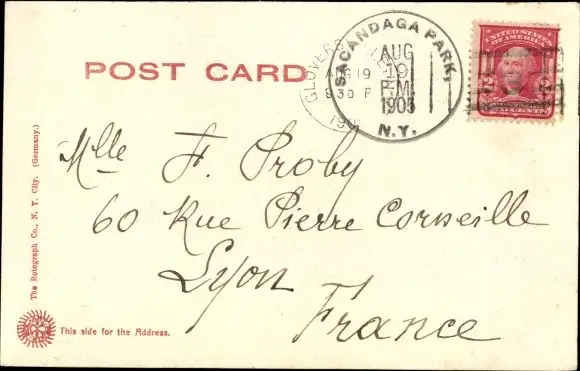 POST CARD
GLOVERSVILLE
AUG 19
930 P
190
SACANDAGA PARK,
AUG
19
P.M.
1905
N.Y.
UNITED STATES
OF AMERICA
2 2
CENTS
Mlle F. Proby
60 Rue Pierre Corneille
Lyon
France
The Rotograph Co., N. Y. City. (Germany.)
This side for the Address.